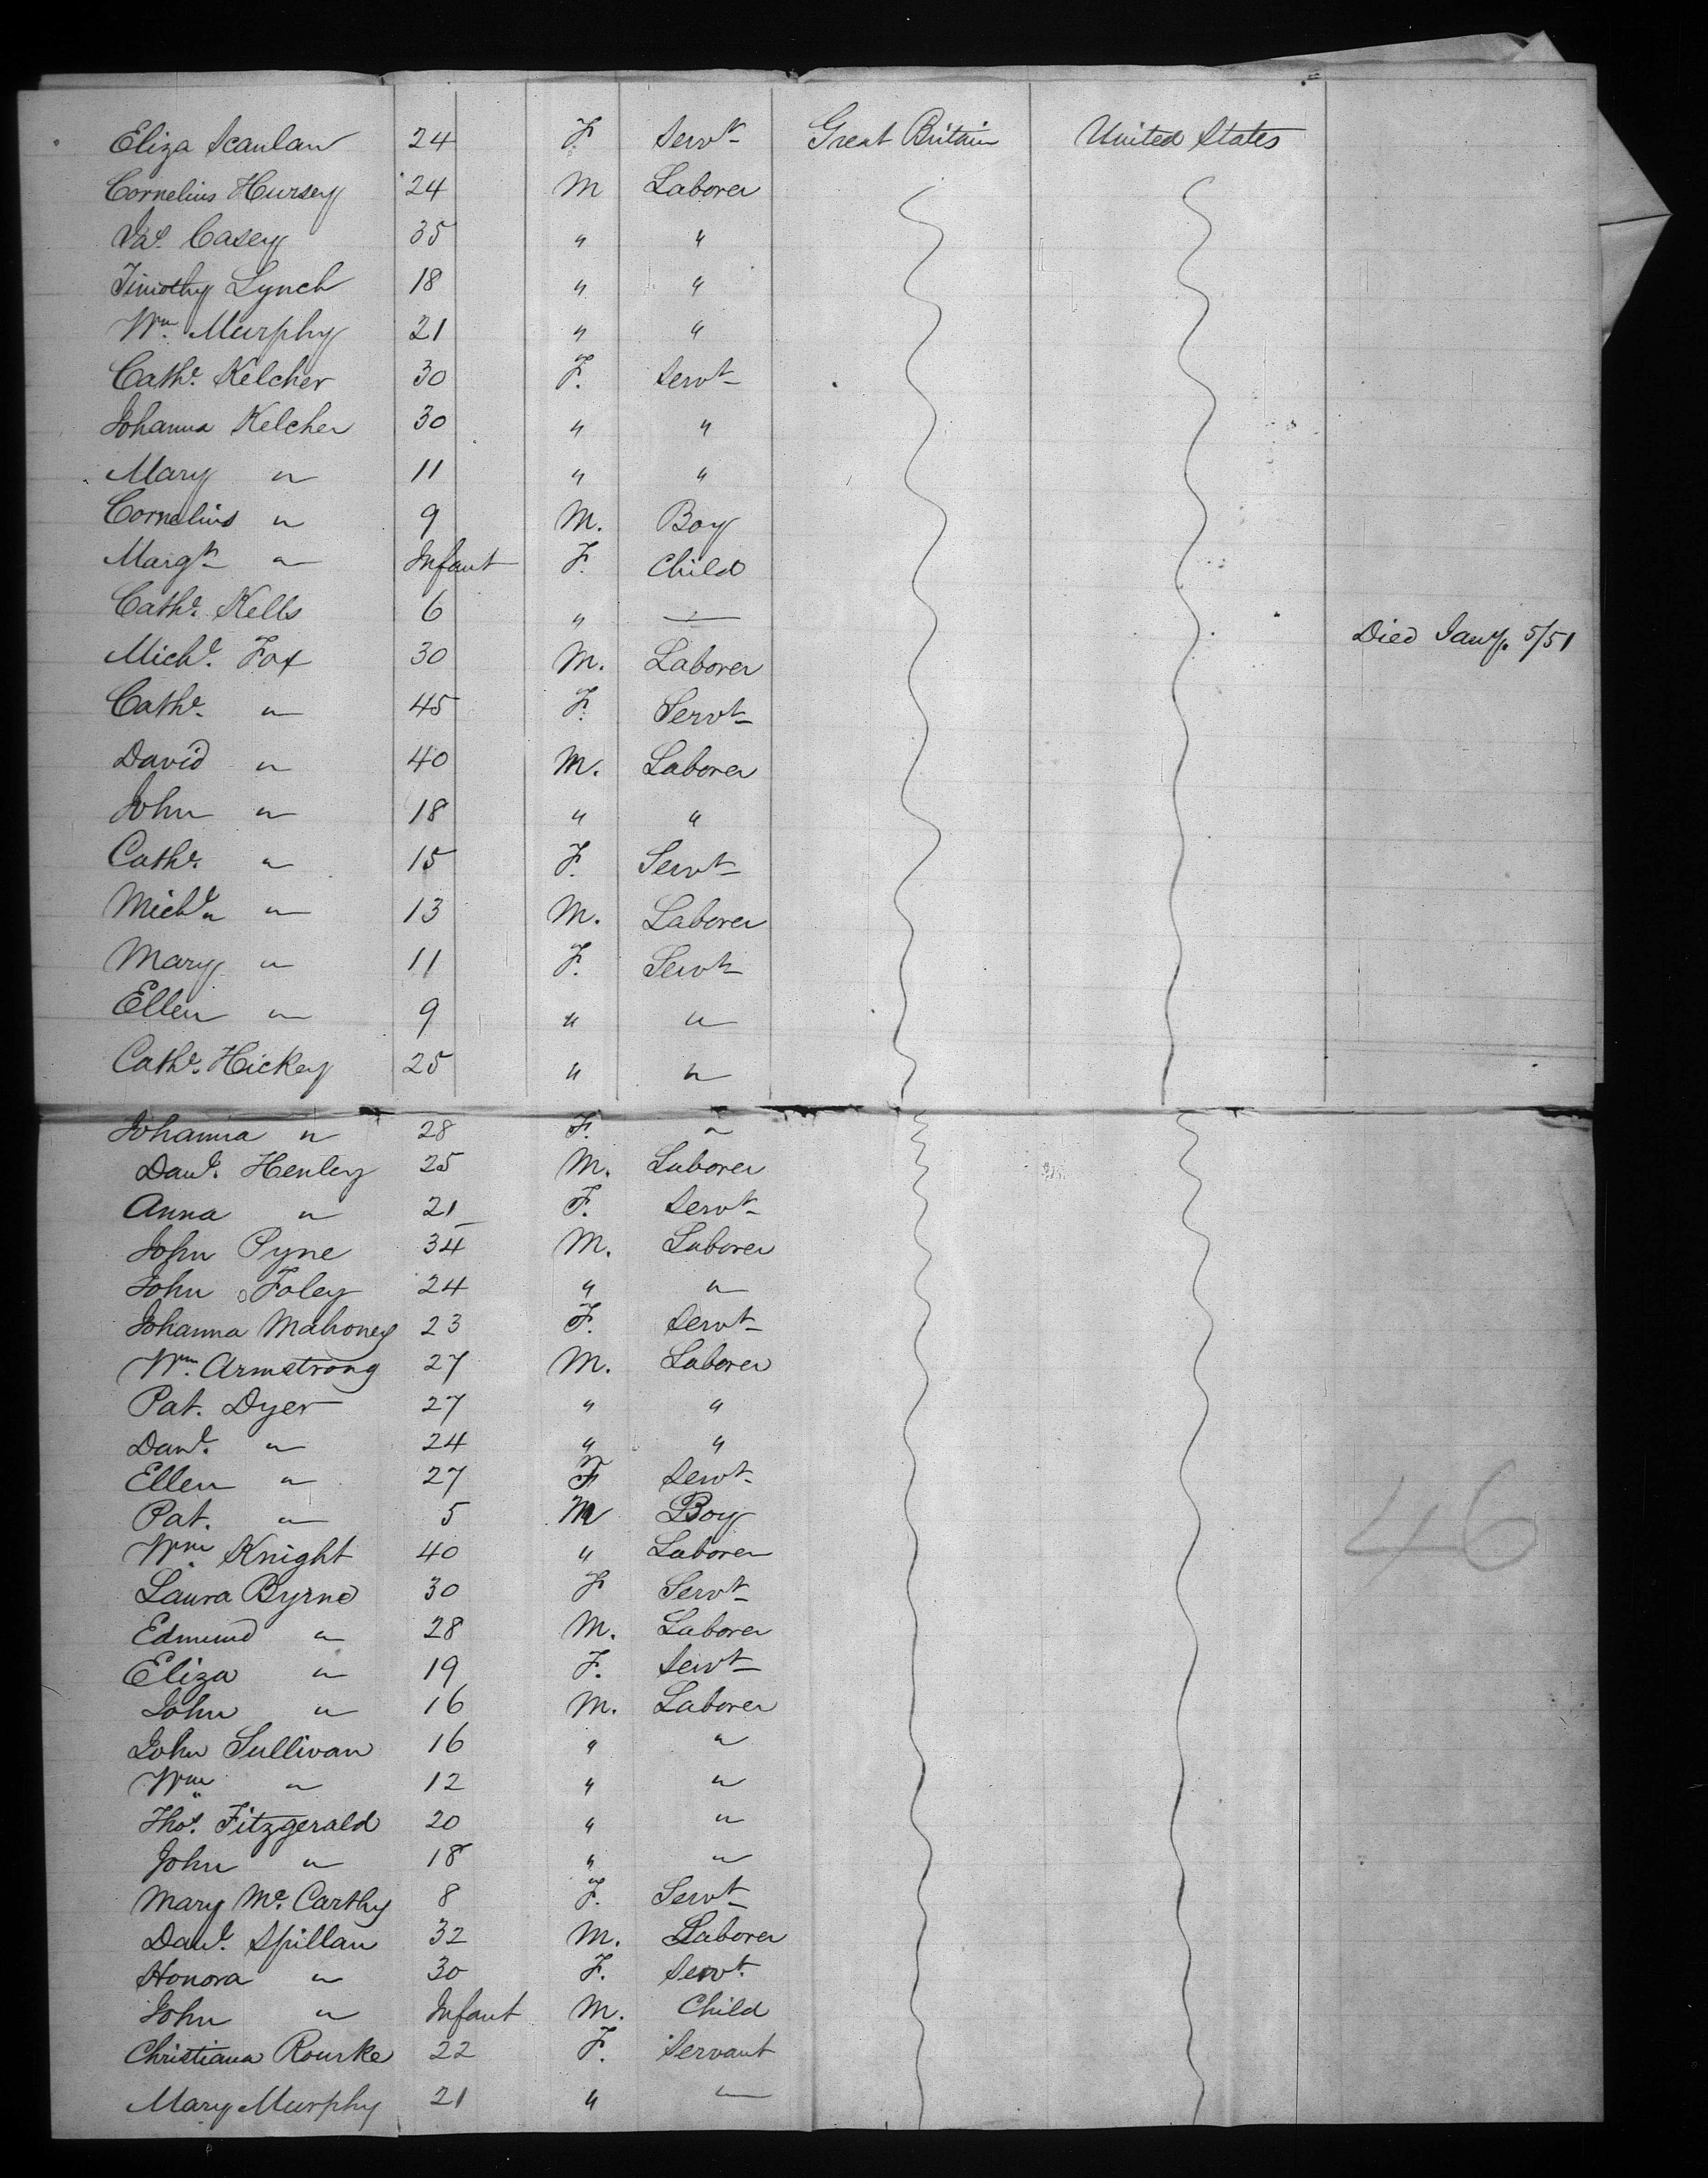 Eliza Scanlan 24 F. Servt Great Britain United States
Cornelius Hursey 24 M Laborer
Jas. Casey 35 " "
Timothy Lynch 18 " "
Wm. Murphy 21 " "
Cathe. Kelcher 30 F. Servt
Johanna Kelcher 30 " "
Mary " 11 " "
Cornelius " 9 M. Boy
Margt " Infant F. Child
Cathe. Kells 6 " — Died Jany. 5/51
Michl. Fox 30 M. Laborer
Cathe. " 45 F. Servt
David " 40 M. Laborer
John " 18 " "
Cathe. " 15 F. Servt
Michl. " 13 M. Laborer
Mary " 11 F. Servt
Ellen " 9 " "
Cathe. Hickey 25 " "
Johanna " 28 F. "
Danl. Henley 25 M. Laborer
Anna " 21 F. Servt
John Pyne 34 M. Laborer
John Foley 24 " "
Johanna Mahoney 23 F. Servt
Wm. Armstrong 27 M. Laborer
Pat. Dyer 27 " "
Danl. " 24 " "
Ellen " 27 F Servt
Pat. " 5 M Boy
Wm. Knight 40 " Laborer
46
Laura Byrne 30 F Servt
Edmund " 28 M. Laborer
Eliza " 19 F. Servt
John " 16 M. Laborer
John Sullivan 16 " "
Wm " 12 " "
Thos. Fitzgerald 20 " "
John " 18 " "
Mary Mc. Carthy 8 F. Servt
Danl. Spillan 32 M. Laborer
Honora " 30 F. Servt.
John " Infant M. Child
Christiana Rourke 22 F. Servant
Mary Murphy 21 " "